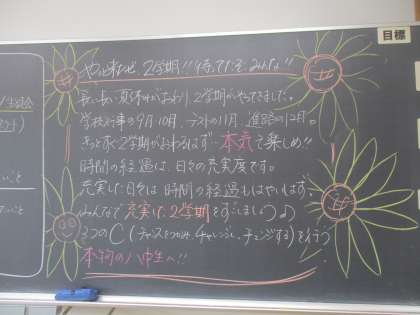 目標
やって来たぜ、2学期!!待ってたぞ、みんな!!
長い長い夏休みがおわり、2学期がやってきました。
学校行事の9月、10月、テストの11月、進路の12月。
きっとすぐ2学期がおわるはず…本気で楽しめ!!
時間の経過は、日々の充実度です。
充実した日々は時間の経過もはやいはず、
みんなで充実した2学期をすごしましょう♪
3つのC(チャンスをつかみ、チャレンジし、チェンジする)を行う
本物の八中生へ!!